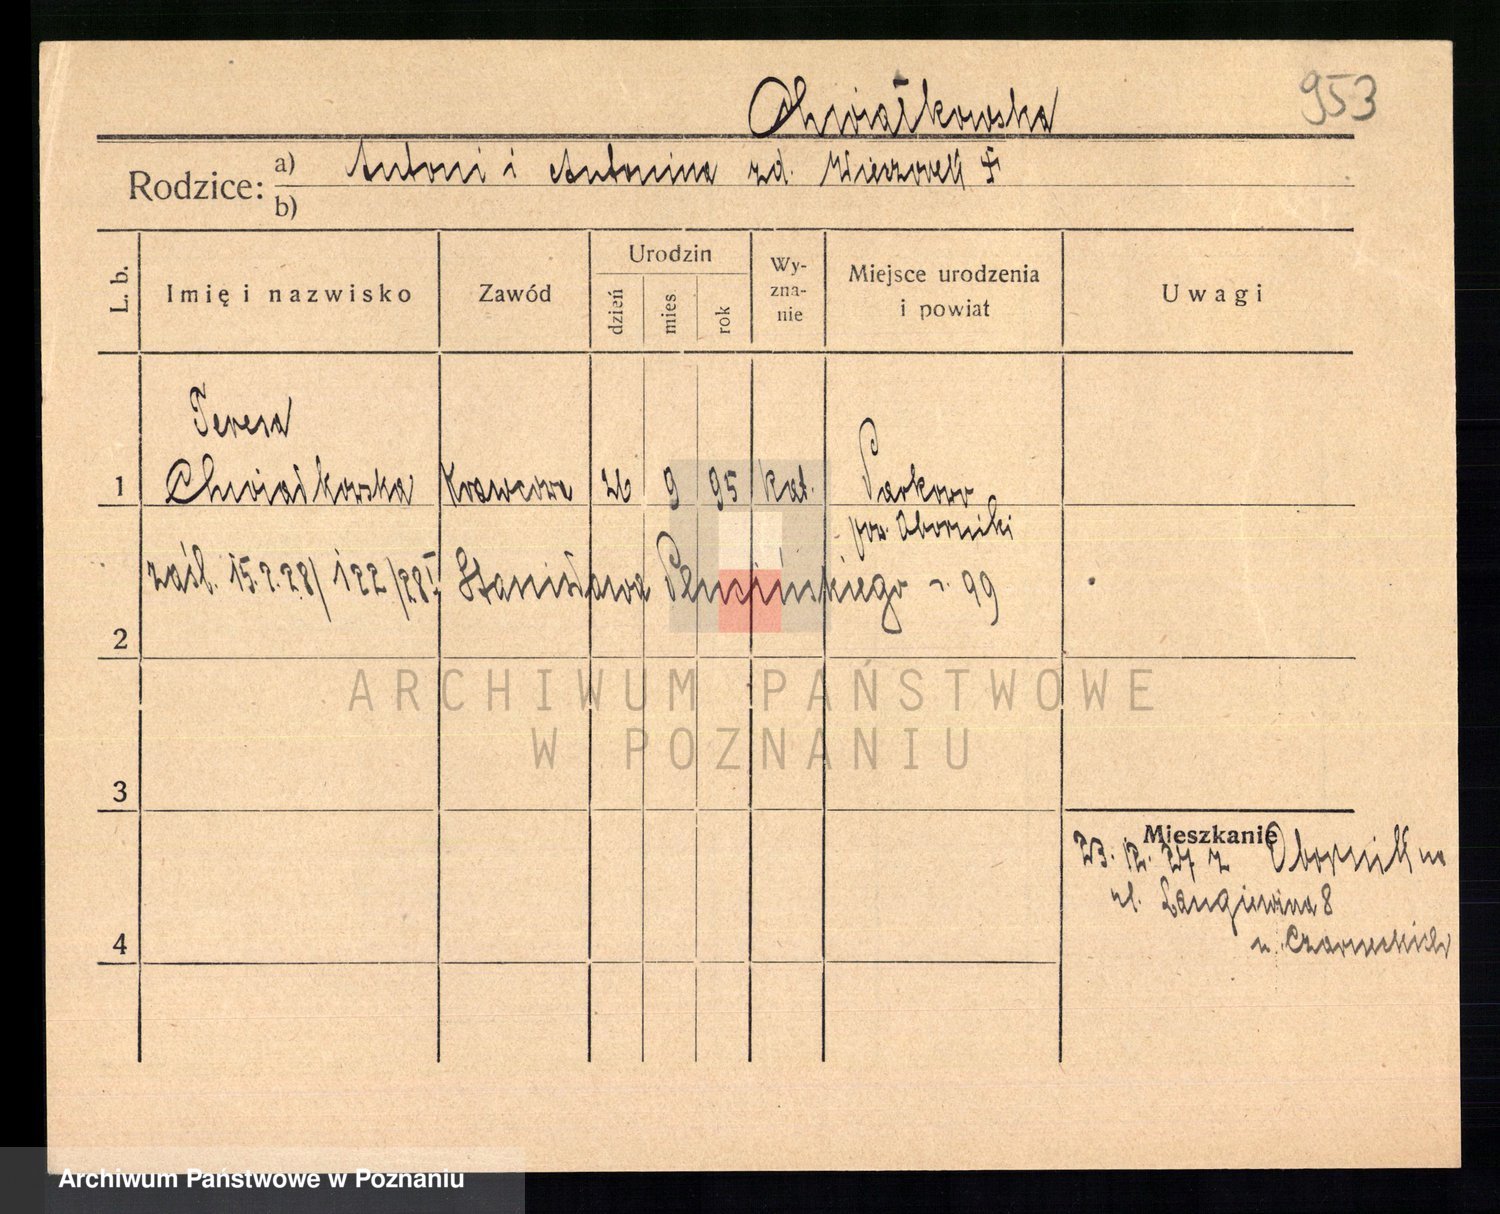 953
Chwiałkowska
Rodzice: a) Antoni i Antonina zd. Wieczorek
b)
L. b.
Imię i nazwisko
Zawód
Urodzin
dzień
mies
rok
Wy-
zna-
nie
Miejsce urodzenia
i powiat
Uwagi
Teresa
1 Chwiałkowska Krawcowa 26 9 95 kat. Parkowo
pow. Oborniki
zaśl. 15.2.28/ 122/28 I Stanisława Plucińskiego r. 99
2
ARCHIWUM PAŃSTWOWE
W POZNANIU
3
Mieszkanie
23. 12. 27 z Obornik na
ul. Langiewicza 8
u. Czarneckich
4
Archiwum Państwowe w Poznaniu